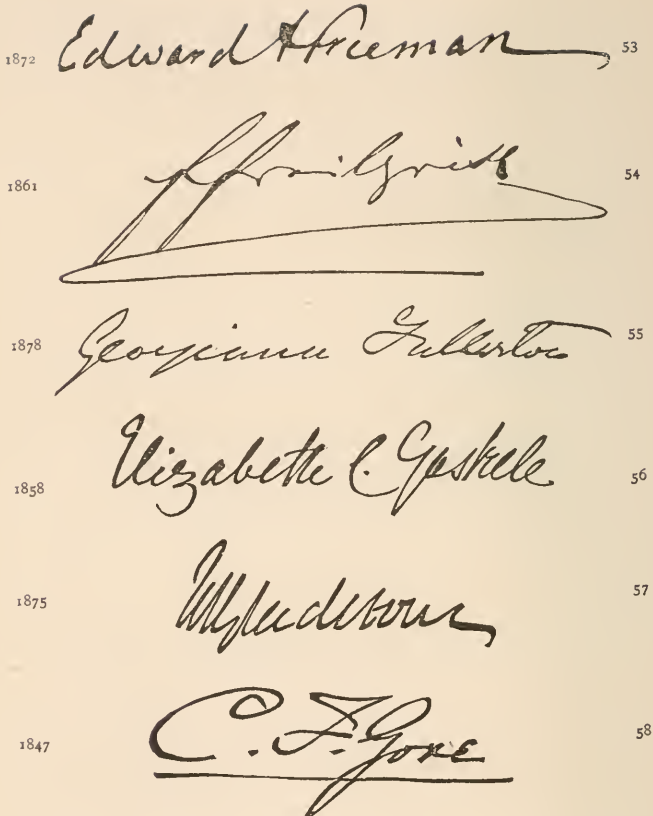 1872 Edward A Freeman 53
1861 54
1878 Georgiana Fullerton 55
1858 Elizabeth C. Gaskell 56
1875 WEGladstone 57
1847 C. F. Gore 58